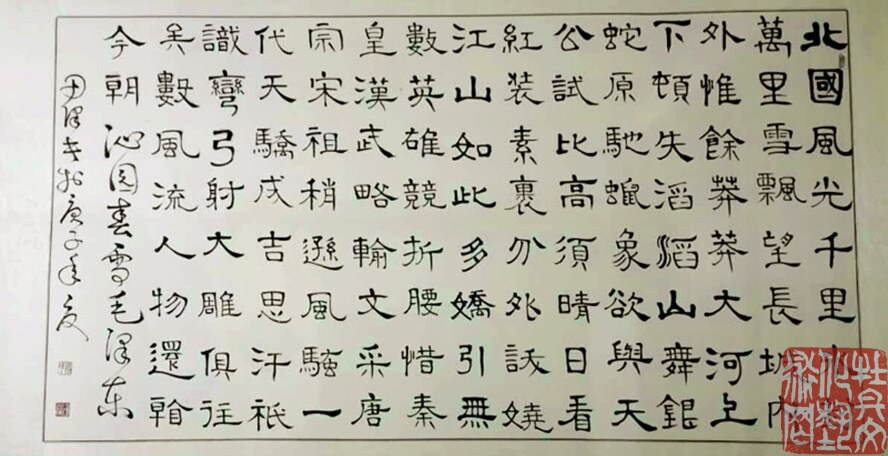 北國風光千里
萬里雪飄望長城内
外惟餘莽莽大河上
下頓失滔滔山舞銀
蛇原馳蠟象欲與天
公試比高須晴日看
紅裝素裹分外訞嬈
江山如此多嬌引無
數英雄競折腰惜秦
皇漢武略輸文采唐
宗宋祖稍遜風騷一
代天驕成吉思汗祇
識彎弓射大雕俱往
矣數風流人物還看
今朝 沁园春雪毛泽东
田泽书於庚子年夏
牡丹文